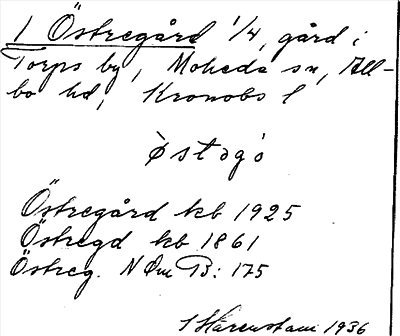 1 Östregård 1/4, gård i
Torps by, Moheda sn, All-
bo hd, Kronobs l
östəgö
Östregård kb 1925
Östregd kb 1861
Östreg. NOm B: 175
1936